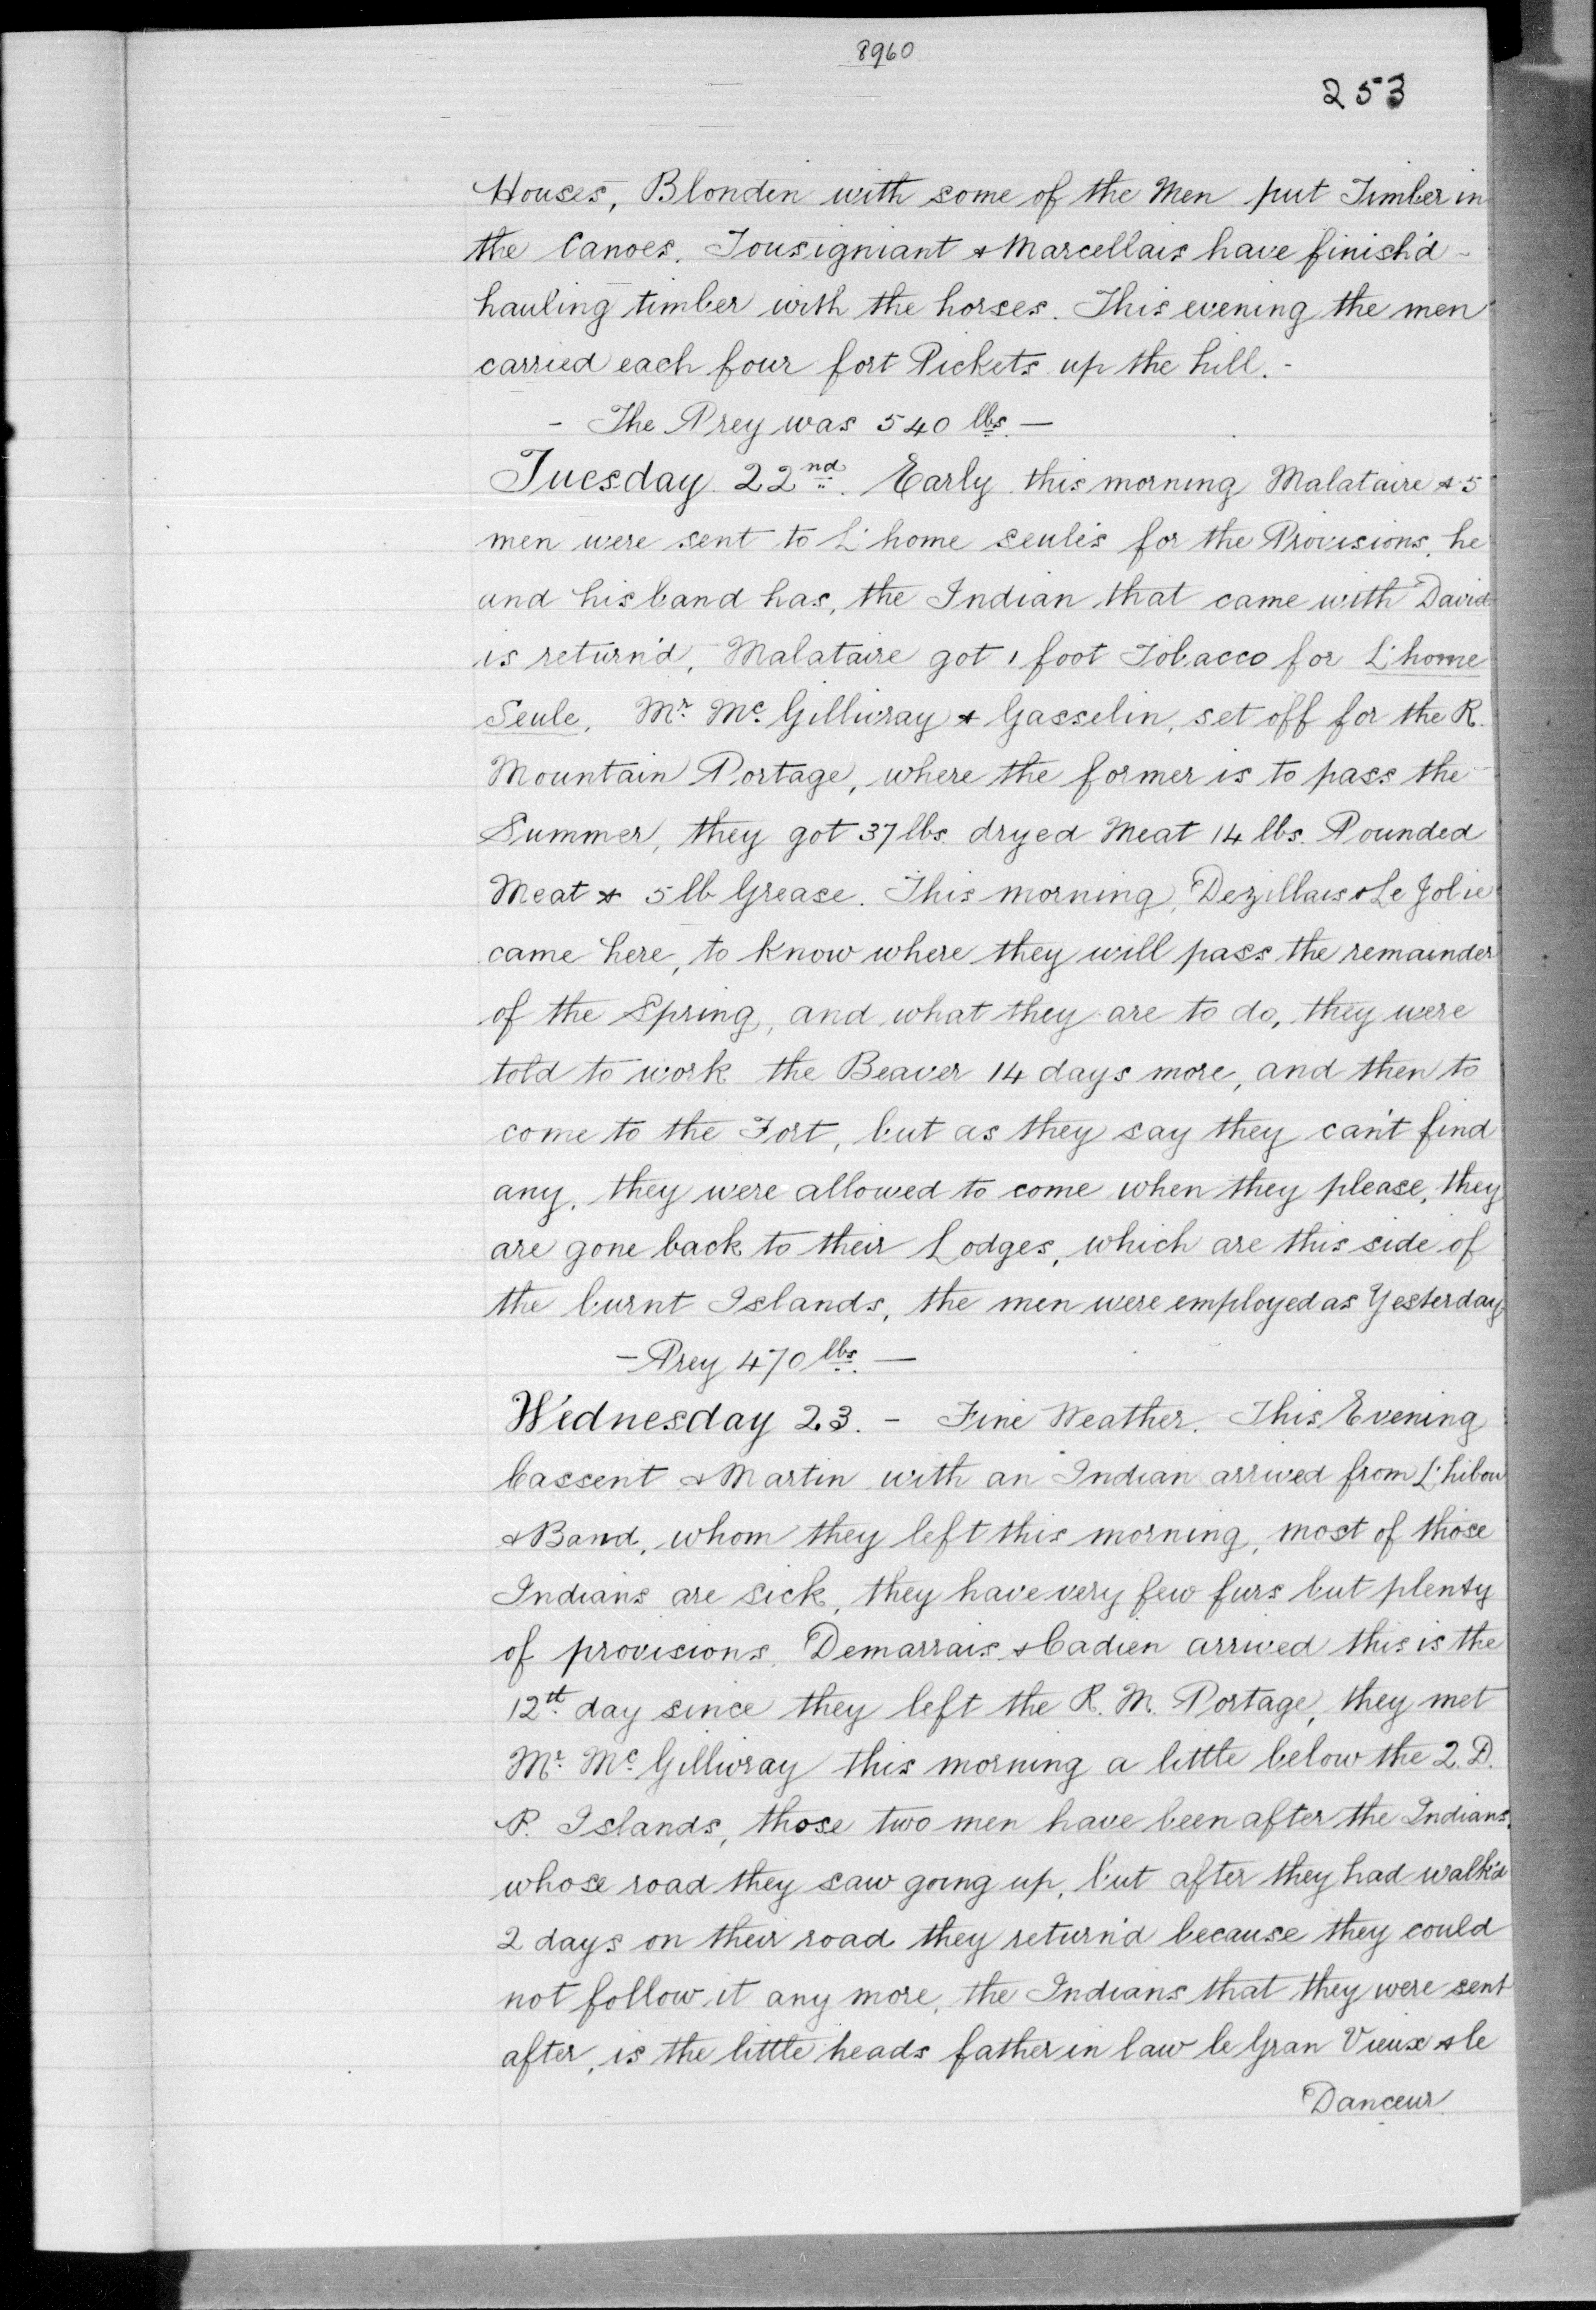 8960
253
Houses, Blondin with some of the Men put Timber in
the Canoes. Tousigniant & Marcellais have finish'd -
hauling timber with the horses. This evening the men
carried each four fort Pickets up the hill. -
- The Prey was 540 lbs. —
Tuesday 22nd. Early this morning Malataire & 5
men were sent to L'home seule's for the Provisions, he
and his band has, the Indian that came with David
is return'd, Malataire got 1 foot Tobacco for L'home
Seule, Mr. Mc. Gillivray & Gasselin, set off for the R.
Mountain Portage, where the former is to pass the
Summer, they got 37 lbs. dryed Meat 14 lbs. Pounded
Meat & 5 lb Grease. This morning, Dezillais & Le Jolie
came here, to know where they will pass the remainder
of the Spring, and what they are to do, they were
told to work the Beaver 14 days more, and then to
come to the Fort, but as they say they can't find
any, they were allowed to come when they please, they
are gone back to their Lodges, which are this side of
the burnt Islands, the men were employed as Yesterday
- Prey 470 lbs. —
Wednesday 23. - Fine Weather. This Evening
Cassent & Martin with an Indian arrived from L'hibou
& Band, whom they left this morning, most of those
Indians are sick, they have very few furs but plenty
of provisions, Demarrais & Cadien arrived this is the
12th day since they left the R. M. Portage, they met
Mr. Mc. Gillivray this morning a little below the 2. D.
P. Islands, those two men have been after the Indians,
whose road they saw going up, but after they had walk'd
2 days on their road they return'd because they could
not follow it any more, the Indians that they were sent
after, is the little heads father in law le Gran Vieux & le
Danceur